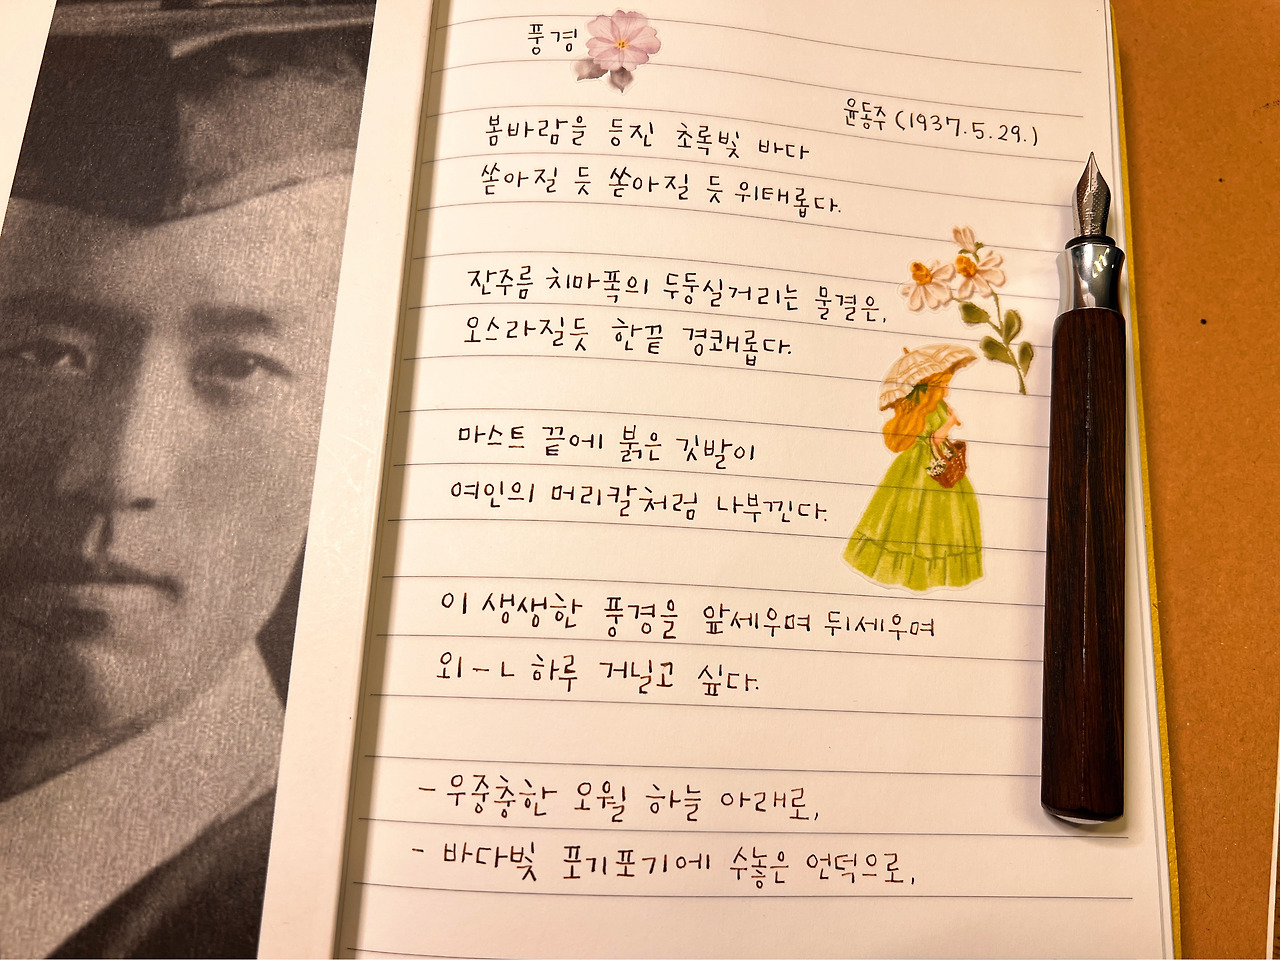 풍경
윤동주 (1937.5.29.)
봄바람을 등진 초록빛 바다
쏟아질 듯 쏟아질 듯 위태롭다.
잔주름 치마폭의 두둥실거리는 물결은,
오스라질듯 한끝 경쾌롭다.
마스트 끝에 붉은 깃발이
여인의 머리칼처럼 나부낀다.
이 생생한 풍경을 앞세우며 뒤세우며
외-ㄴ 하루 거닐고 싶다.
- 우중충한 오월 하늘 아래로,
- 바다빛 포기포기에 수놓은 언덕으로,